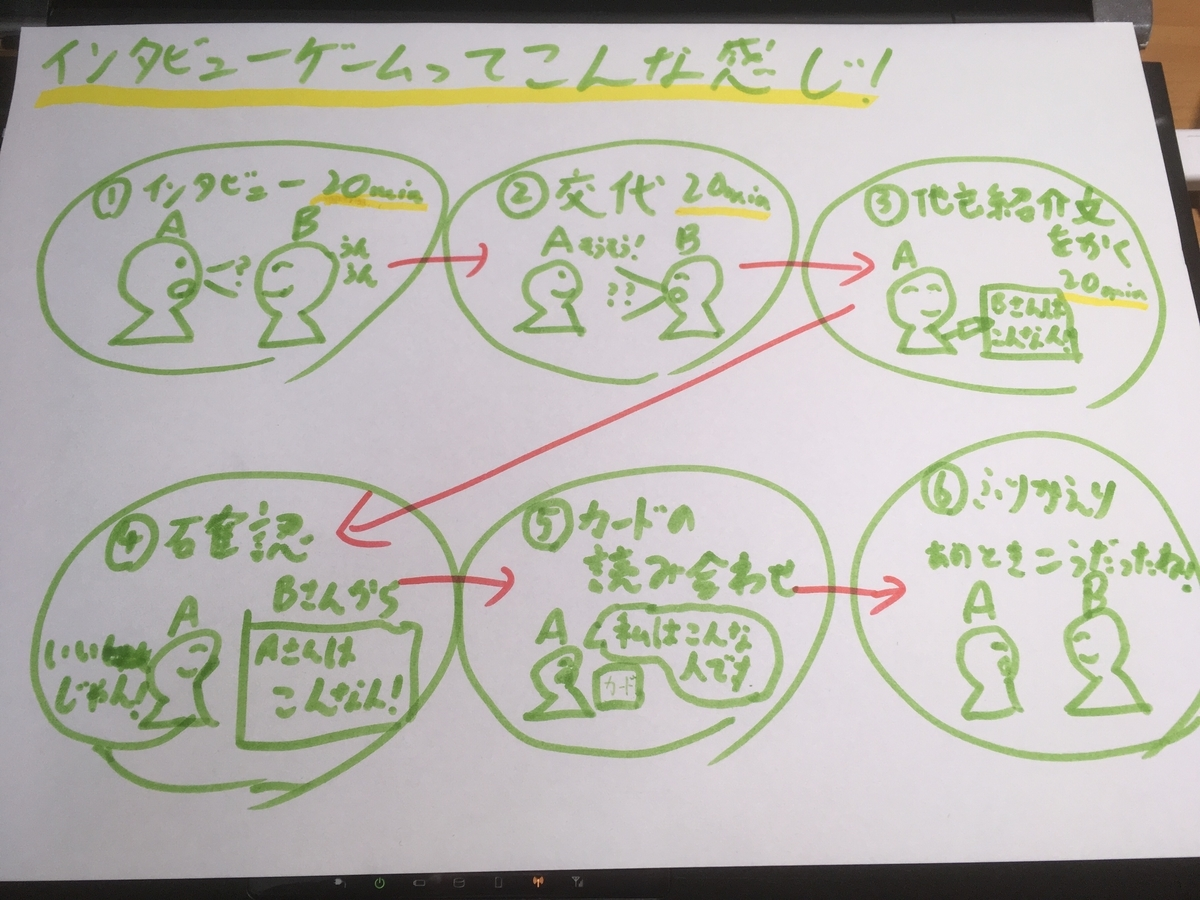 インタビューゲームってこんな感じ!
① インタビュー 20min
A
B
?
うん
うん
② 交代 20min
A
そうそう!
B
??
③ 他己紹介文
をかく
20min
A
Bさんは
こんなん!
④ 確認
Bさんから
A
いい
じゃん!
Aさんは
こんなん!
⑤ カードの
読み合わせ
A
私はこんな
人です
カード
⑥ ふりかえり
あのときこうだったね!
A
B